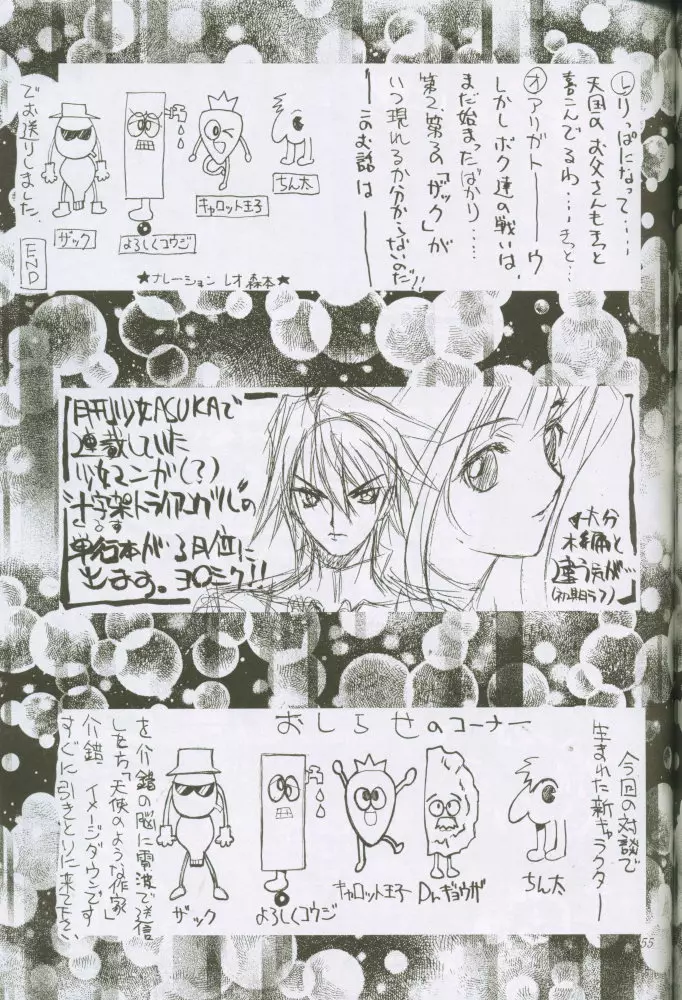 し り、ぱになって……
天国のお父さんもきっと
喜こんでるわ…。きっと…
オ アリガトーーーウ
しかしボク達の戦いは、
まだ始まったばかり……
第2、第3の「ザック」が
いつ現れるか分からないのだ!!
──このお話は──
ちん太
キャロット王子
よろしくコウジ
ザック
でお送りしました。
END
★ナレーション レオ森本★
月刊少女ASUKAで
連載していた
少女マンガ(?)
十字架トライアングルの
単行本が3月位に
出ます。ヨロシク!!
大分
本編と
違う気が…
(初期ラフ)
おしらせのコーナー
今回の対談で
生まれた新キャラクター
ちん太
Dr.ギョウザ
キャロット王子
よろしくコウジ
ザック
を介錯の脳に電波で送信
した方「天使のような作家
介錯」イメージダウンです
すぐに引きとりに来て下さい、
55